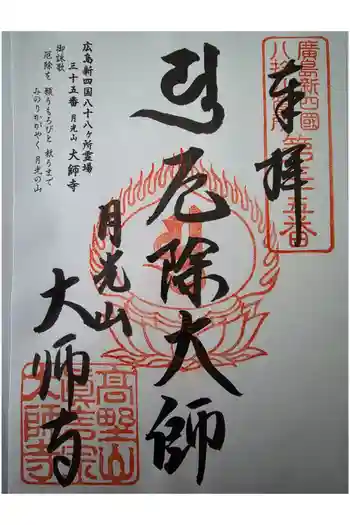 廣島新四國
八十八ヶ所
第三十五番
奉拝
厄除大師
月光山
大师寺
広島新四国八十八ヶ所霊場
三十五番 月光山 大師寺
御詠歌
厄除を 願うもろびと 救うまで
みのりかがやく 月光の山
高野山
真言宗
大師寺